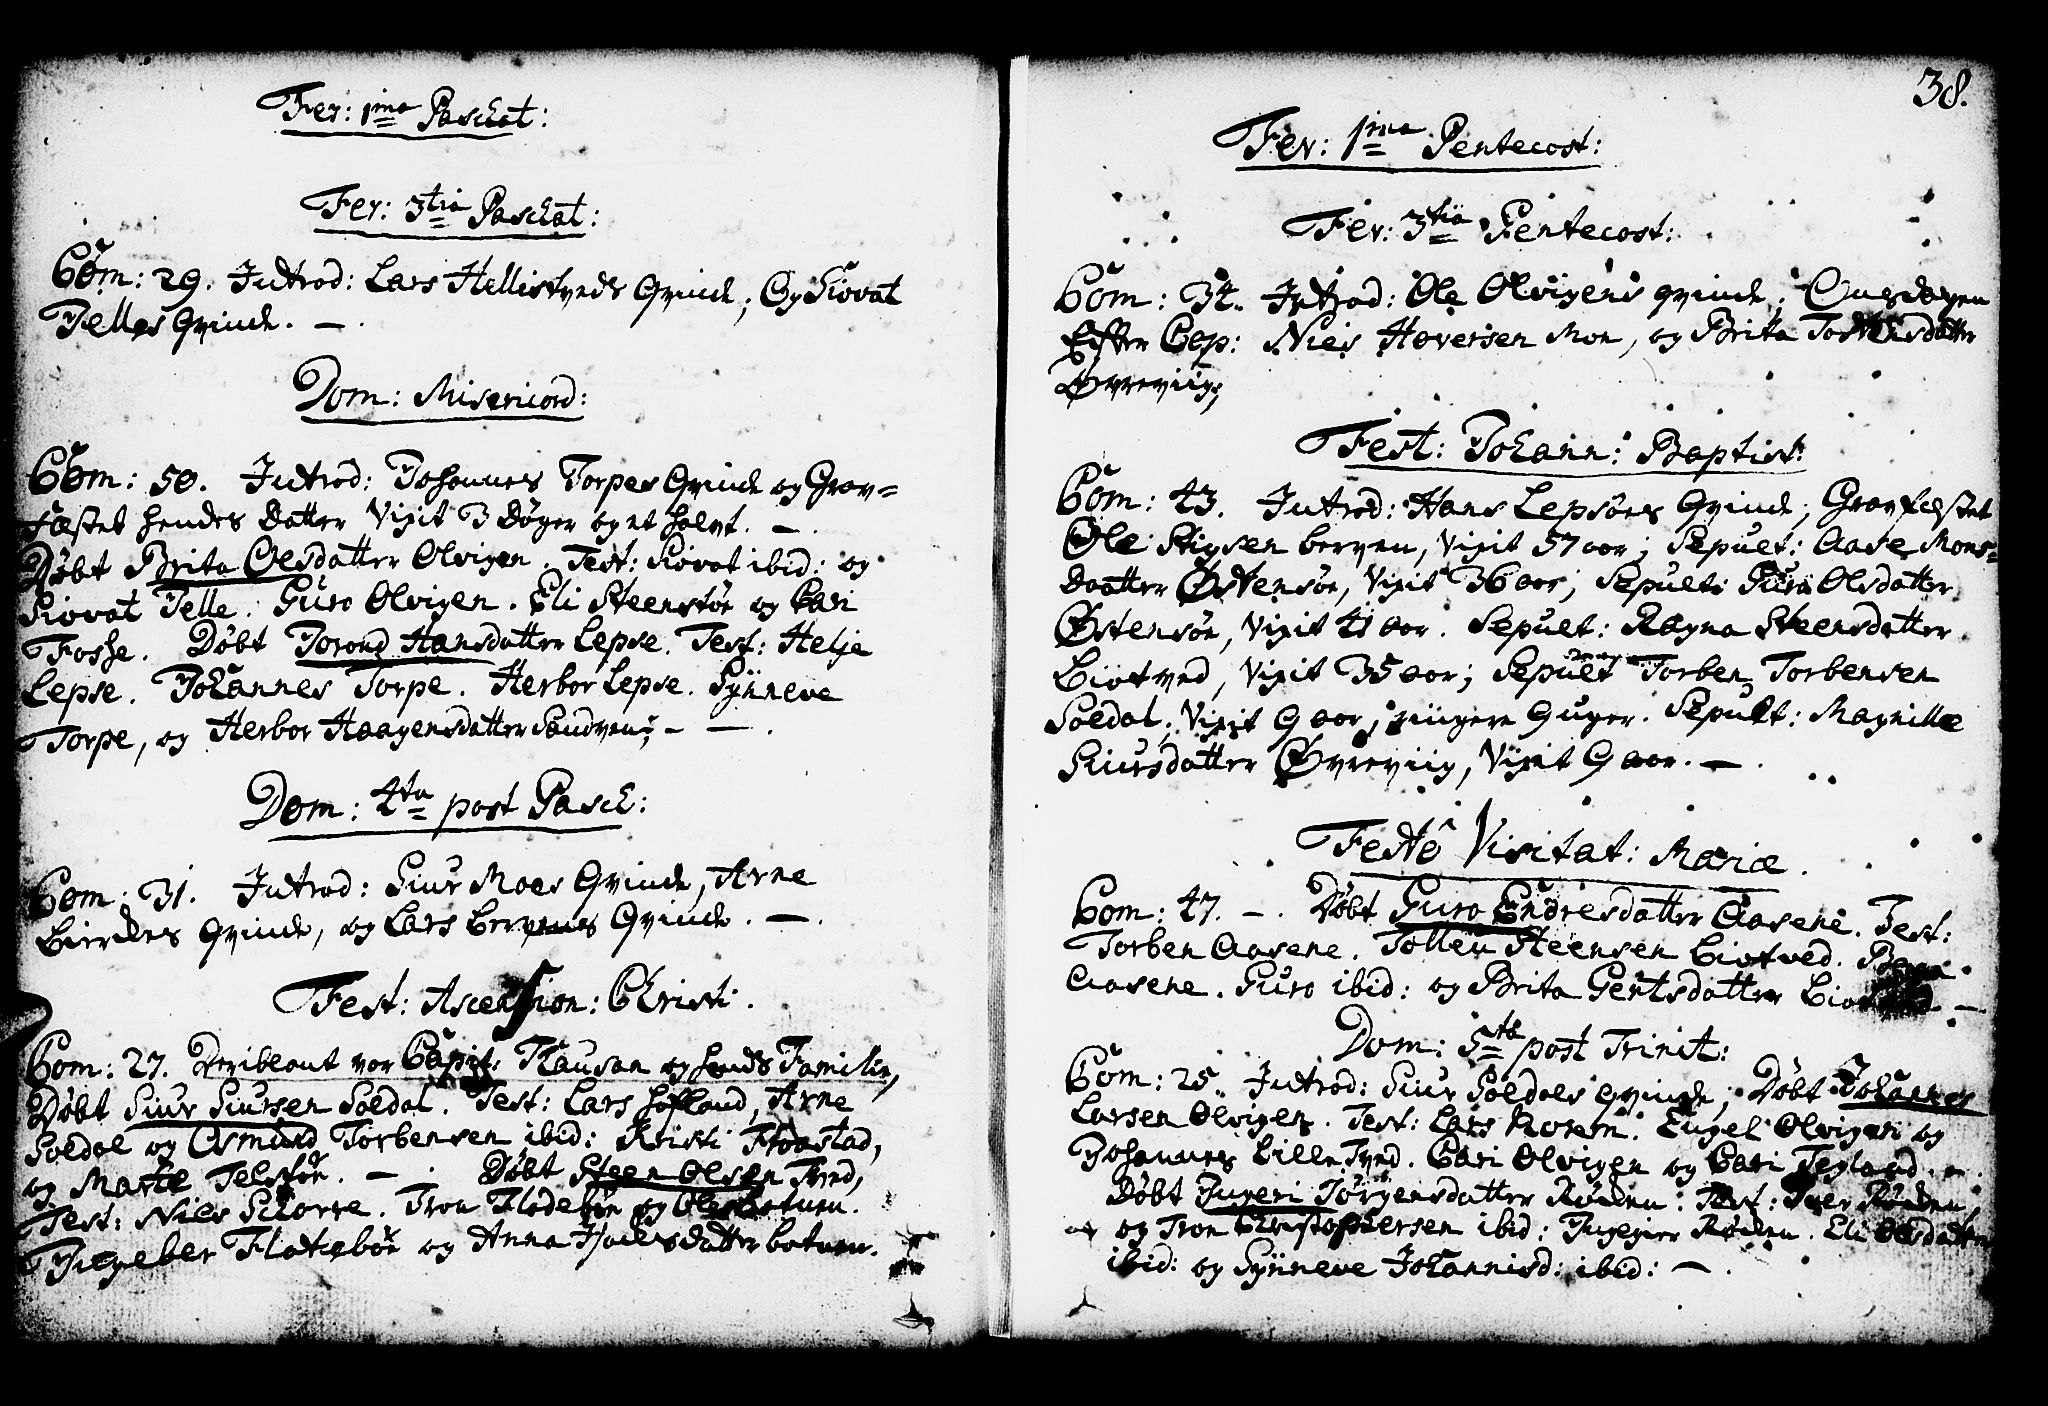 Fer: 1ma Paschat:
Fer: 3tia Paschat:
Com: 29. Introd: Lars Hellistveds Qvinde; Og Siovat
Telles Qvinde. —.
Dom: Misericord:
Com: 50. Introd: Johannes Torpes Qvinde og Grav=
fæstet hendes Datter Vixit 3 Døger og et halvt. —.
Døbt Brita Olsdatter Olvigen. Test: Siovat ibid: og
Siovat Telle. Guro Olvigen. Eli Steenstøe og Cari
Fosse. Døbt Torond Hansdatter Lepse. Test: Helje
Lepse. Johannes Torpe. Herbor Lepse. Sÿnneve
Torpe, og Herbor Haagensdatter Sandven; — —.
Dom: 4ta post Pasch:
Com: 31. Introd: Siur Moes Qvinde, Arne
Bierckes Qvinde, og Lars Bervens Qvinde. —.
Fest: Ascension: Christi.
Com: 27. Deriblant var Capit: Clausan og hends Familie,
Døbt Siur Siursen Soldal. Test: Lars Hofland, Arne
Soldal og Osmund Torbensen ibid: Kristi Floastad,
og Marte Telstøe. —. Døbt Steen Olsen Tved,
Test: Niels Skorre. Tron Flodebøe og Ole Botnen.
Ingeber Flatebøe og Anna Hallsdatter botnen.
38.
Fer: 1ma Pentecost:
Fer: 3tia Pentecost:
Com: 34. Introd: Ole Olvigens qvinde; Onsdagen
Efter Cop: Niels Haversen Moe, og Brita Tostensdatter
Øvreviig;
Fest: Johann: Baptist:
Com: 43. Introd: Hans Lepsøes Qvinde; Gravfæstet
Ole Stigsen berven, Vixit 57 aar; Sepult: Aase Mons=
Daatter Østensøe, Vixit 36 aar; Sepult: Guro Olsdatter
Østensøe, Vixit 41 aar. Sepult: Ragna Steensdatter
Liotved, Vixit 35 aar; Sepult Torben Torbensen
Soldal. Vixit 9 aar, ringere Guger. Sepult: Magnille
Siursdatter Øvreviig, Vixit 9 aar. —.
Festô Visitat: Mariæ.
Com: 47. —. Døbt Guro Endresdatter Aasene. Test:
Torben Aasene. Tollev Steensen Liotved.
Aasene. Guro ibid: og Brita Gertsdatter —.
Dom: 5ta post Trinit:
Com: 25. Introd: Siur Soldals qvinde; Døbt Johannes
Larsen Olvigen. Test: Lars Engel Olvigen og
Johannes Lille Tved. Cari Olvigen og Cari Tegland. —.
Døbt Ingeri Jørgensdatter Rønen: Test: Iver Rønen,
og Tron Christophersen ibid: Ingegier Rønen. Eli Olsdatter
ibid: og Sÿnneve Johannisd: ibid: —.